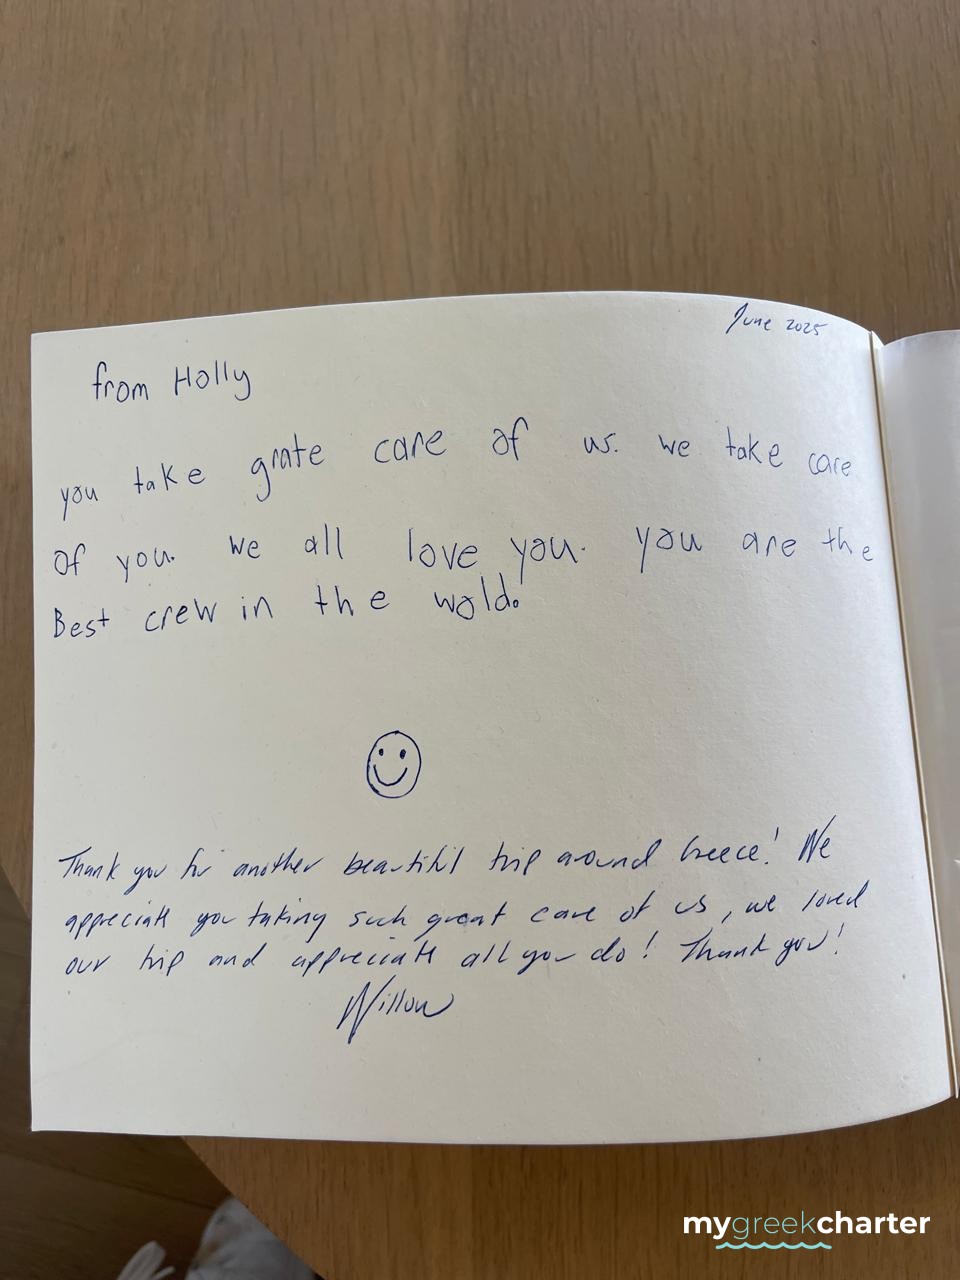 June 2025
from Holly
you take grate care of us. we take care
of you. we all love you. you are the
Best crew in the wold.
Thank you for another beautiful trip around Greece! We
appreciate you taking such great care of us, we loved
our trip and appreciate all you do! Thank you!
Willow
mygreekcharter